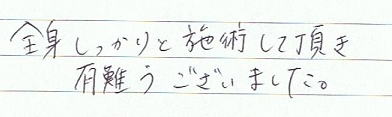 全身しっかりと施術して頂き
有難うございました。